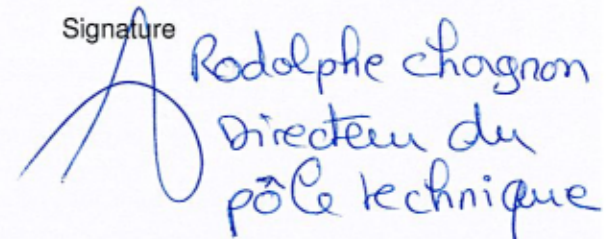 Signature
Rodolphe Chagnon
Directeur du
pôle technique